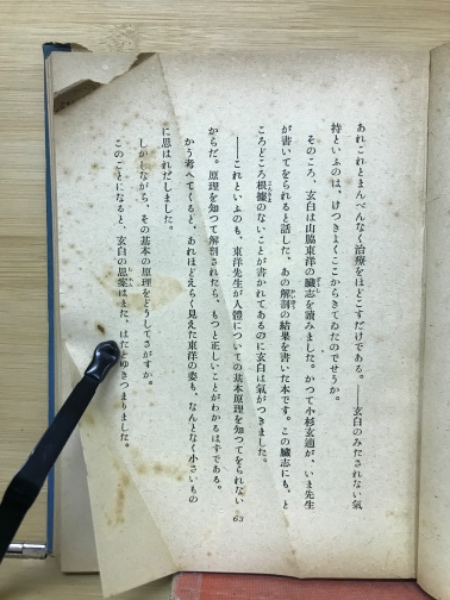 あれこれとまんべんなく治療をほどこすだけである。――玄白のみたされない氣
持といふのは、けつきよくここからきてゐたのでせうか。
そのころ、玄白は山脇東洋の臟志を讀みました。かつて小杉玄適が、いま先生
が書いてをられると話した、あの解剖の結果を書いた本です。この臟志にも、と
ころどころ根據のないことが書かれてあるのに玄白は氣がつきました。
――これといふのも、東洋先生が人體についての基本原理を知つてをられない
からだ。原理を知つて解剖されたら、もつと正しいことがわかるはずである。
かう考へてくると、あれほどえらく見えた東洋の姿も、なんとなく小さいもの
に思はれだしました。
しかしながら、その基本の原理をどうしてさがすか。
このことになると、玄白の思案はまた、はたとゆきつまりました。
63